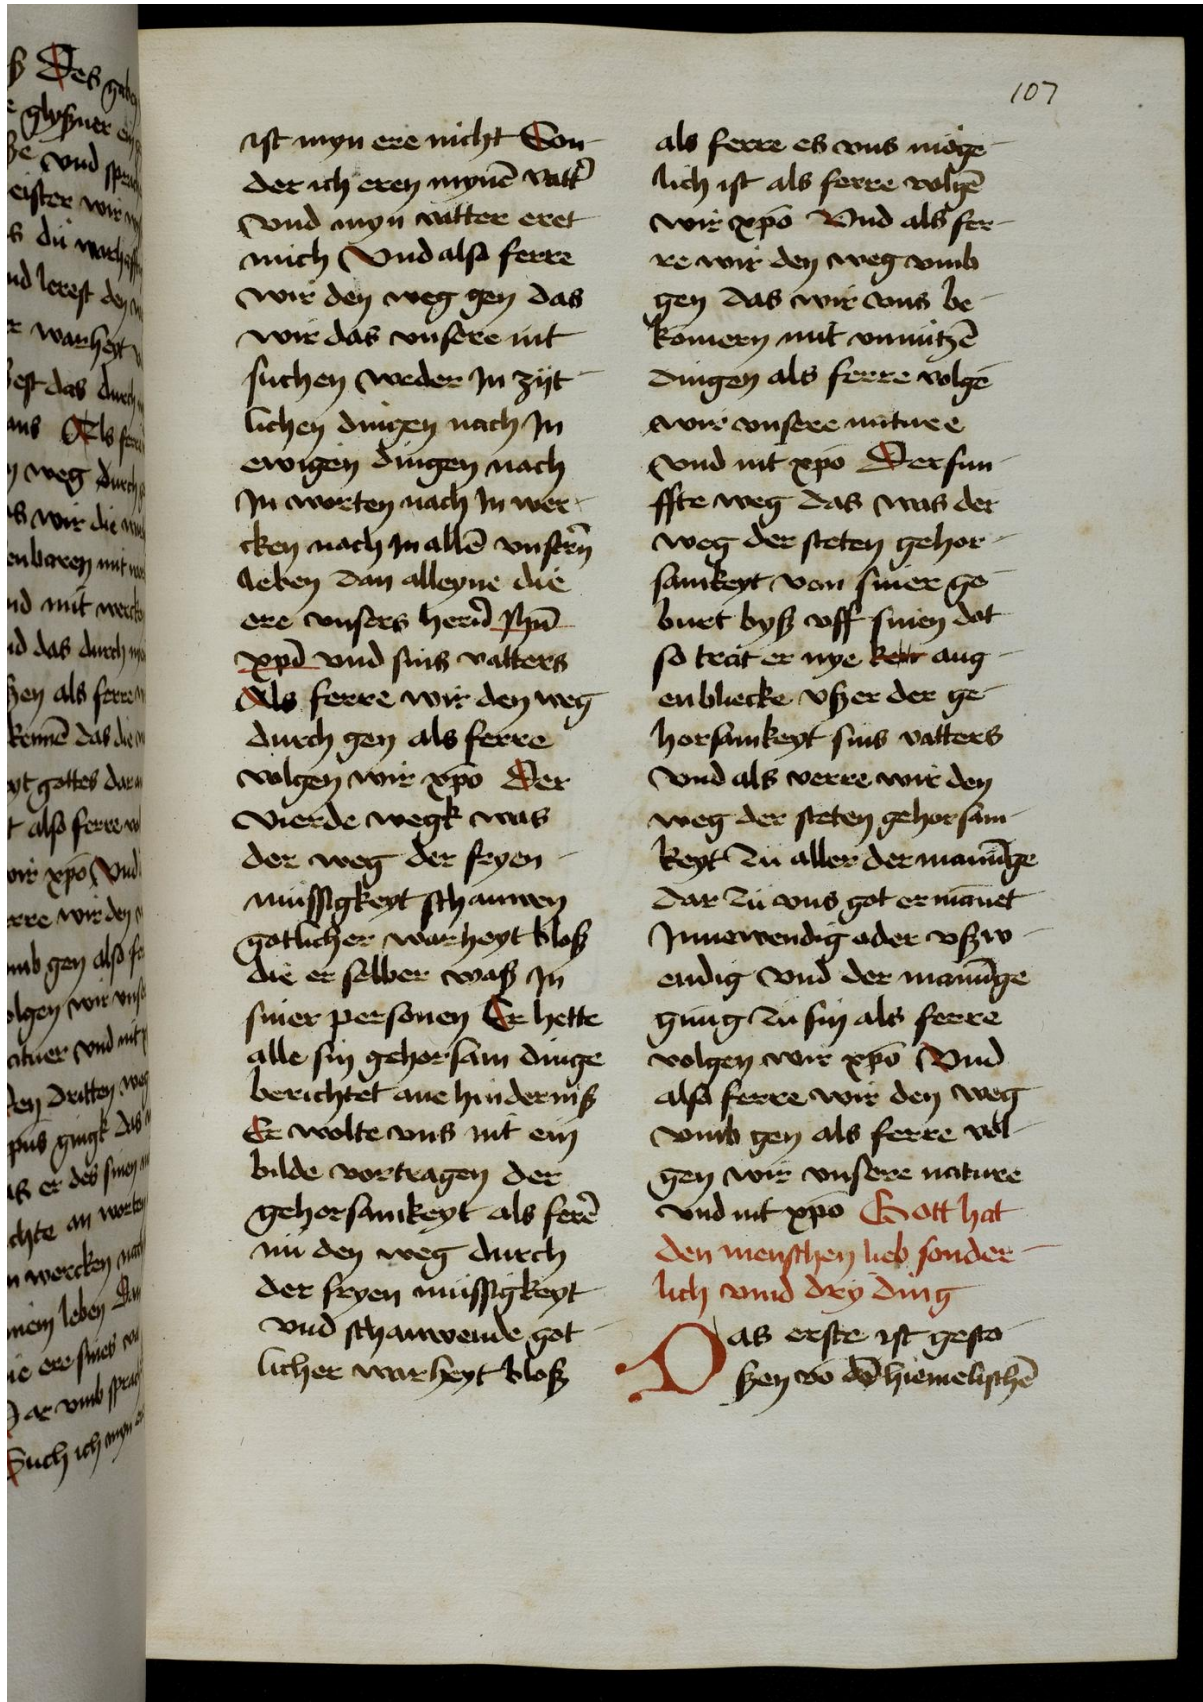 107
ist myn ere nicht Son-
der ich eren mynē vatt͛
Vnd myn vatter eret
mich Vnd also ferre
wir den weg gen das
wir das vnsere nit
suchen weder In zijt
lichen dingen nach In
ewigen dingen nach
In worten nach In wer-
cken nach In allē vnserm̄
leben dan alleyne die
ere vnsers hern̄ Jhū
xpī vnd sins vatters
Als ferre wir den weg
durch gen als ferre
volgen wir xpō Der
vierde wegk was
der weg der fryen
müssigkeyt schauwen
gotlicher warheyt bloß
die er selber waß In
siner personen Er hette
alle sin gehorsam dinge
berichtet ane hinderniß
Er wolte vns nit ein
bilde vortragen der
gehorsamkeyt als ferē
nü den weg durch
der fryen müssigkeyt
vnd schauwende got
licher warheyt bloß
als ferre es vns müge-
lich ist als ferre volgē
wir xpō Vnd als fer-
re wir den weg vmb
gen das wir vns be-
komern mit vnnützē
dingen als ferre volgē
wir vnsere nature
vnd nit xpō Der fun-
ffte weg das was der
weg der steten gehor-
samkeyt von siner ge
burt byß vff sinen dot
so trat er nye keir aug-
enblicke vßer der ge-
horsamkeyt sins vatters
Vnd als verre wir den
weg der steten gehorsam-
keyt zü aller der manūge
dar zü vns got ermanet
Innewendig oder vßw-
endig vnd der manūge
gnüg zü sin als ferre
volgen wir xpō Vnd
also ferre wir den weg
vmb gen als ferre vol-
gen wir vnsere nature
vnd nit xpō Gott hat
den menschen lieb sonder-
lich vmd dry ding
Das erste ist gesto
ßen vō dē hiemelischē